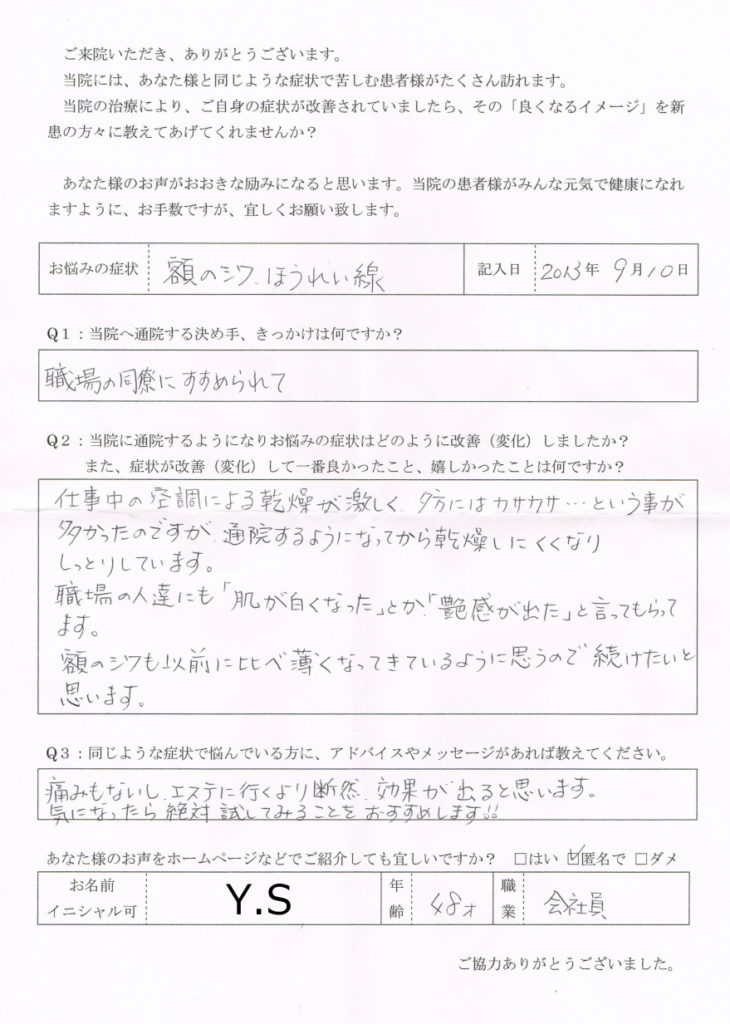 ご来院いただき、ありがとうございます。
当院には、あなた様と同じような症状で苦しむ患者様がたくさん訪れます。
当院の治療により、ご自身の症状が改善されていましたら、その「良くなるイメージ」を新
患の方々に教えてあげてくれませんか？
あなた様のお声がおおきな励みになると思います。当院の患者様がみんな元気で健康になれ
ますように、お手数ですが、宜しくお願い致します。
お悩みの症状 額のシワ、ほうれい線 記入日 2013年 9月10日
Q1：当院へ通院する決め手、きっかけは何ですか？
職場の同僚にすすめられて
Q2：当院に通院するようになりお悩みの症状はどのように改善（変化）しましたか？
また、症状が改善（変化）して一番良かったこと、嬉しかったことは何ですか？
仕事中の空調による乾燥が激しく、夕方にはカサカサ…という事が
多かったのですが、通院するようになってから乾燥しにくくなり
しっとりしています。
職場の人達にも「肌が白くなった」とか、「艶感が出た」と言ってもらって
ます。
額のシワも以前に比べ薄くなってきているように思うので続けたいと
思います。
Q3：同じような症状で悩んでいる方に、アドバイスやメッセージがあれば教えてください。
痛みもないし、エステに行くより断然、効果が出ると思います。
気になったら絶対試してみることをおすすめします!!
あなた様のお声をホームページなどでご紹介しても宜しいですか？ □はい ☑匿名で □ダメ
お名前 イニシャル可 Y.S 年齢 48才 職業 会社員
ご協力ありがとうございました。